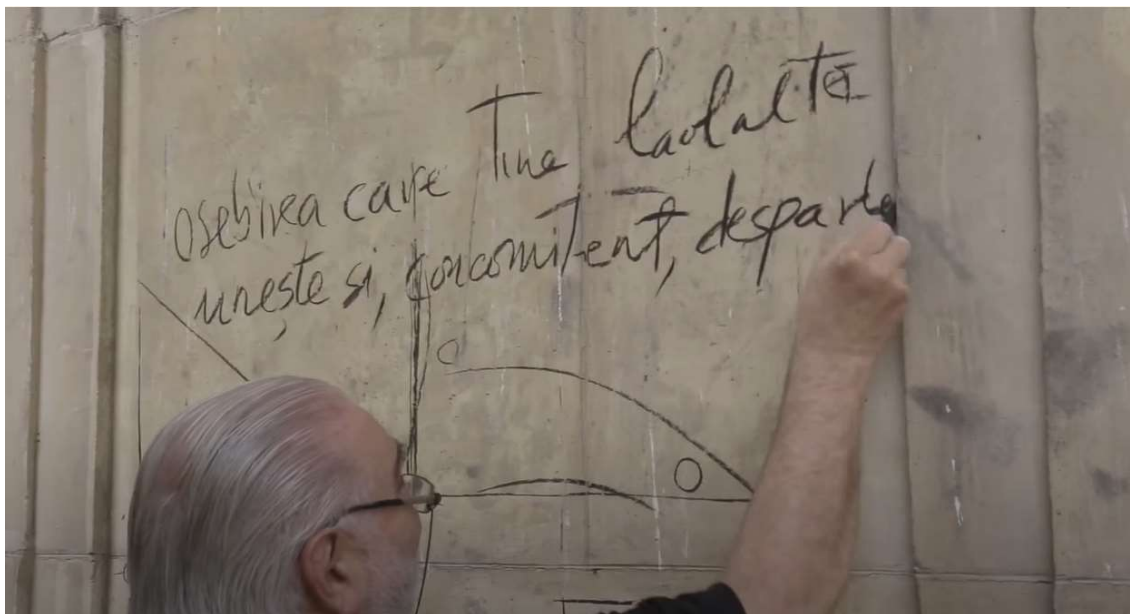 Osebirea care Tine laolaltă
unește si, concomitent, desparte
C
O